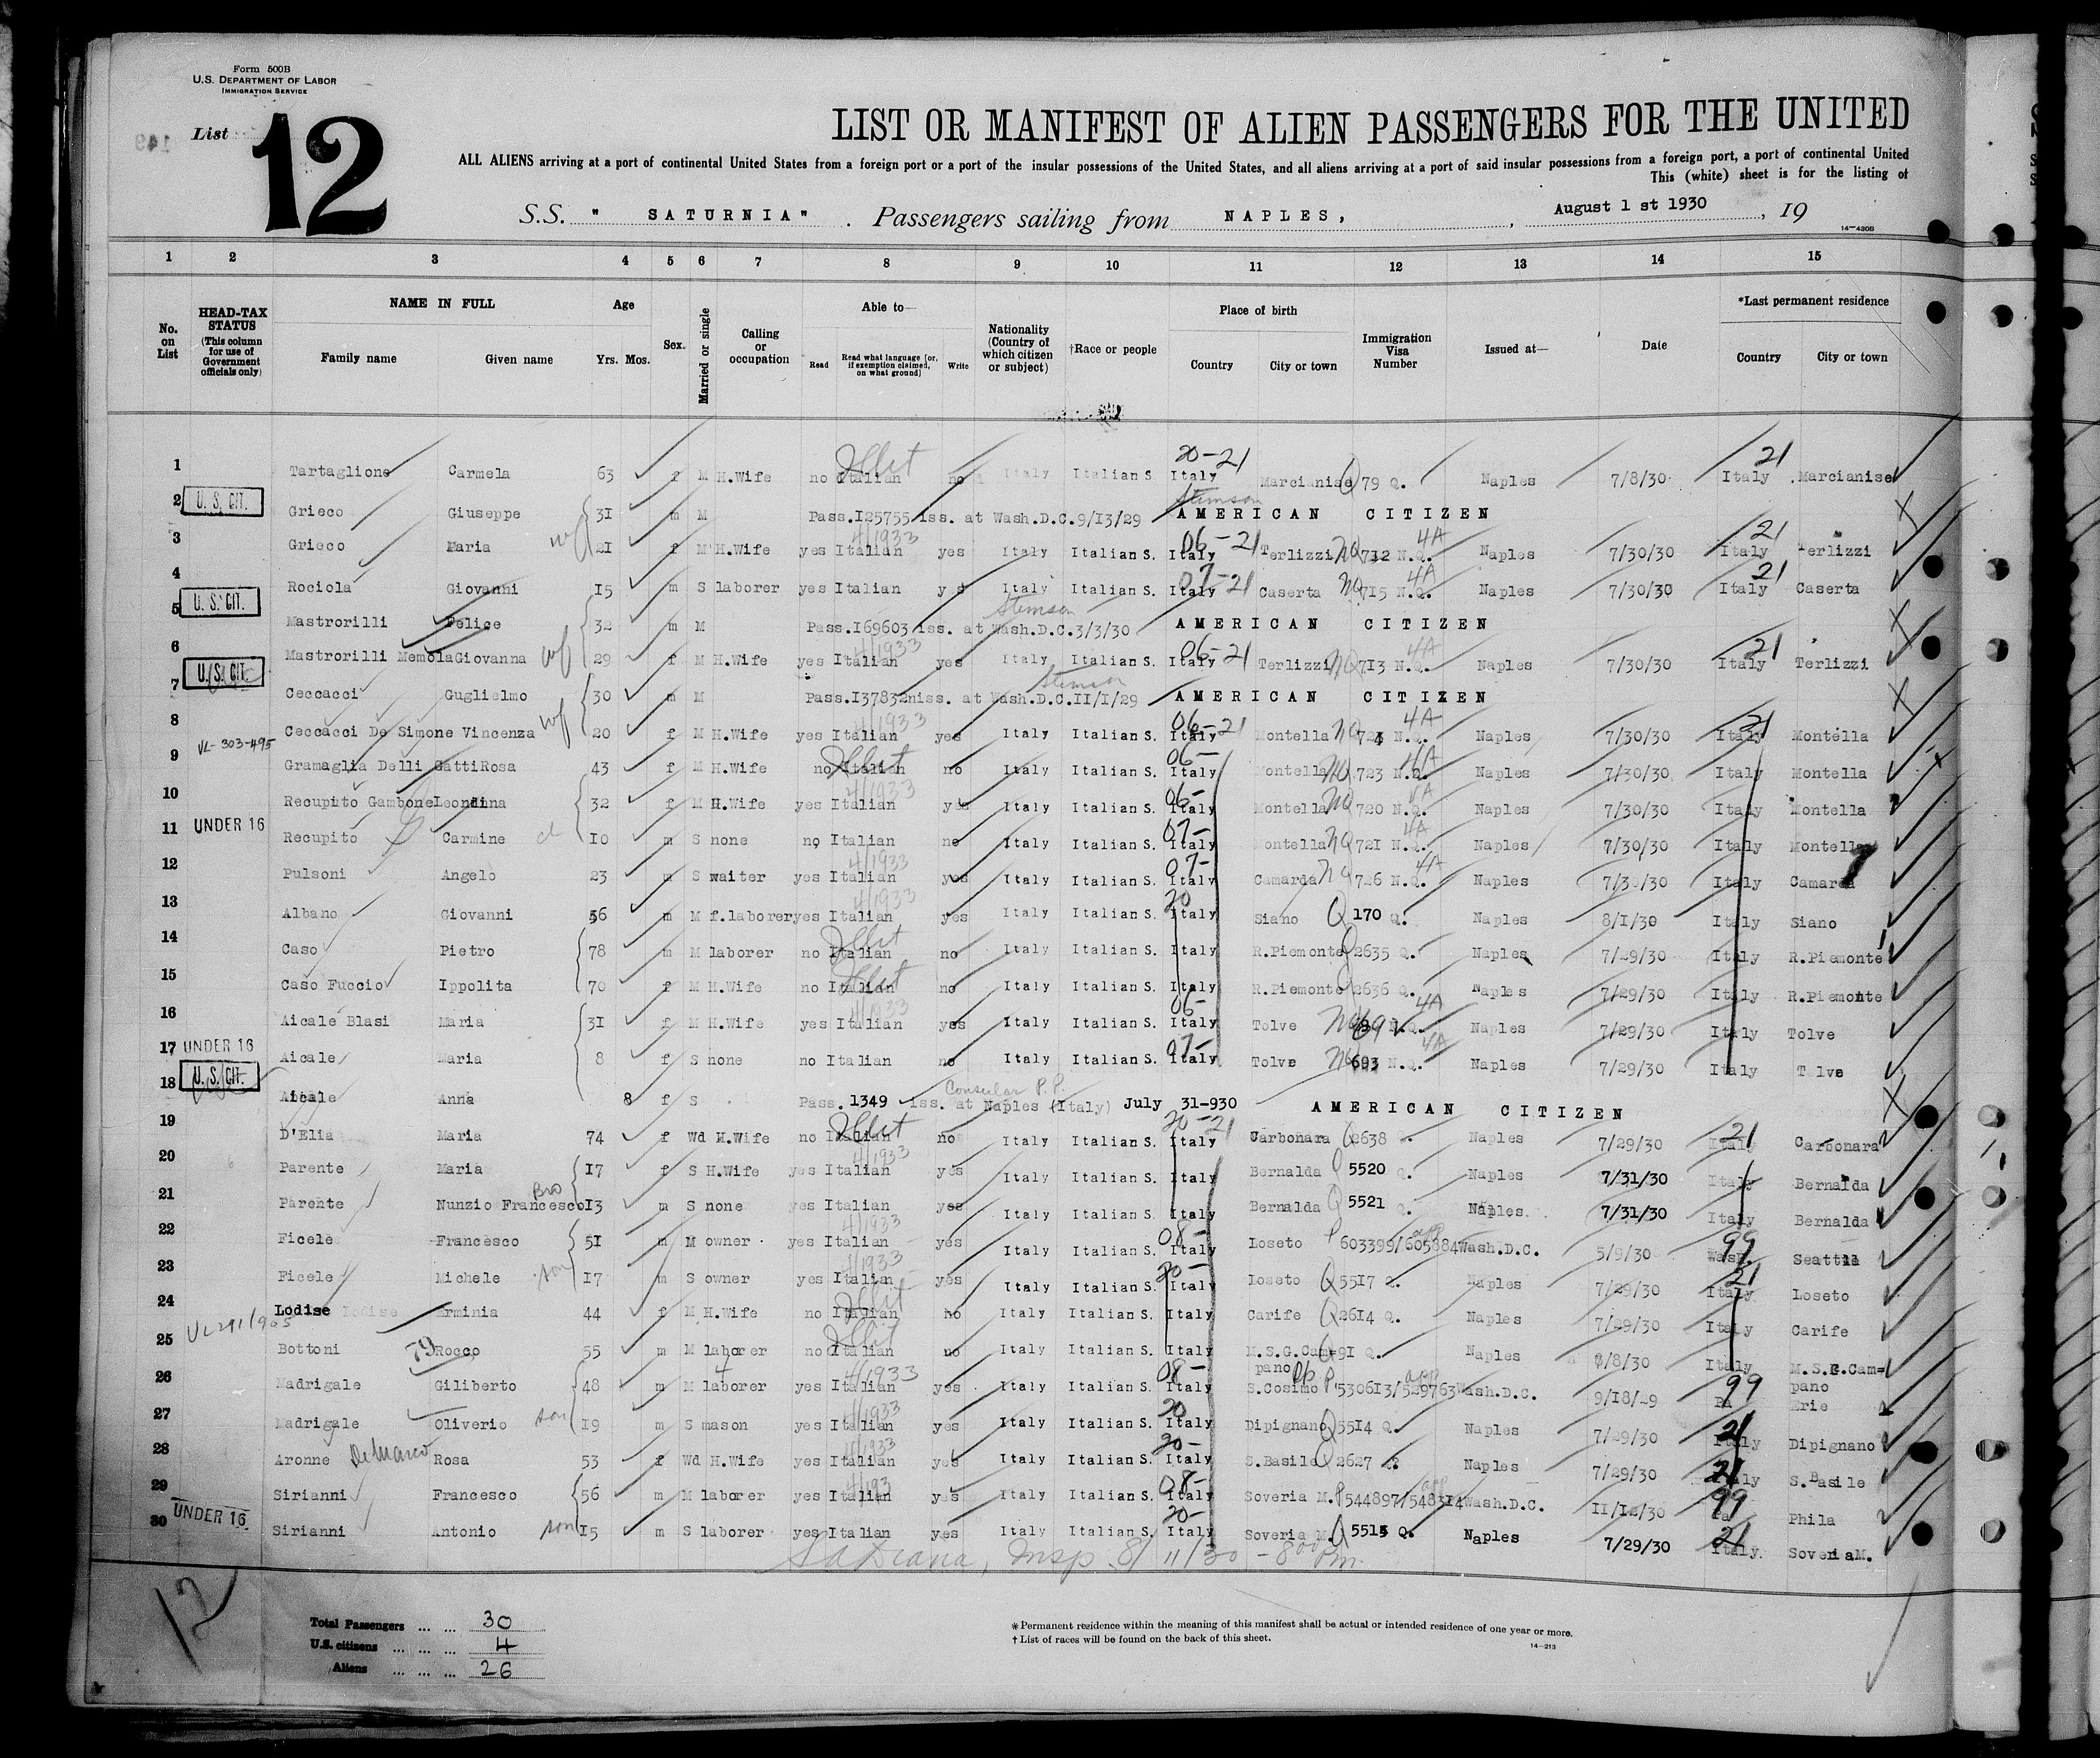 Form 500B
U.S. DEPARTMENT OF LABOR
IMMIGRATION SERVICE
List 12
LIST OR MANIFEST OF ALIEN PASSENGERS FOR THE UNITED
ALL ALIENS arriving at a port of continental United States from a foreign port or a port of the insular possessions of the United States, and all aliens arriving at a port of said insular possessions from a foreign port, a port of continental United
This (white) sheet is for the listing of
S.S. " SATURNIA" . Passengers sailing from NAPLES, , August 1 st 1930 , 19
14—430B
1 2 3 4 5 6 7 8 9 10 11 12 13 14 15
No. on List
HEAD-TAX STATUS (This column for use of Government officials only)
NAME IN FULL Family name Given name
Age Yrs. Mos.
Sex.
Married or single
Calling or occupation
Able to— Read Read what language (or, if exemption claimed, on what ground) Write
Nationality (Country of which citizen or subject)
†Race or people
Place of birth Country City or town
Immigration Visa Number
Issued at—
Date
*Last permanent residence Country City or town
1 Tartaglione Carmela 63 f M H.Wife no Italian no Italy Italian S Italy 20-21 Marcianise Q 79 Q. Naples 7/8/30 Italy 21 Marcianise
2 U.S. CIT. Grieco Giuseppe 31 m M Pass.I25755 iss. at Wash.D.C.9/13/29 Stimson AMERICAN CITIZEN
3 Grieco Maria wf 21 f M H.Wife yes Italian 4/1933 yes Italy Italian S. Italy 06-21 Terlizzi NQ 732 N.Q. 4A Naples 7/30/30 Italy 21 Terlizzi
4 Rociola Giovanni 15 m S laborer yes Italian Italy Italian S. Italy 07-21 Caserta NQ 715 N.Q. 4A Naples 7/30/30 Italy 21 Caserta
5 U.S. CIT. Mastrorilli Felice 32 m M Pass.I69603 iss. at Wash.D.C.3/3/30 Stimson AMERICAN CITIZEN
6 Mastrorilli Memola Giovanna wf 29 f M H.Wife yes Italian 4/1933 yes Italy Italian S. Italy 06-21 Terlizzi NQ 713 N.Q. 4A Naples 7/30/30 Italy 21 Terlizzi
7 U.S. CIT. Ceccacci Guglielmo 30 m M Pass.I37832 iss. at Wash.D.C.II/I/29 Stimson AMERICAN CITIZEN
8 Ceccacci De Simone Vincenza wf 20 f M H.Wife yes Italian 4/1933 yes Italy Italian S. Italy 06-21 Montella NQ N.Q. 4A Naples 7/30/30 Italy 21 Montella
VL-303-495
9 Gramaglia Delli Gatti Rosa 43 f M H.Wife no Italian no Italy Italian S. Italy 06- Montella NQ 723 N.Q. 4A Naples 7/30/30 Italy Montella
10 Recupito Gambone Leondina 32 f M H.Wife yes Italian 4/1933 yes Italy Italian S. Italy 06- Montella NQ 720 N.Q. 4A Naples 7/30/30 Italy Montella
11 UNDER 16 Recupito Carmine 10 m S none no Italian no Italy Italian S. Italy 07- Montella NQ 721 N.Q. 4A Naples 7/30/30 Italy Montella
12 Pulsoni Angelo 23 m S waiter yes Italian 4/1933 yes Italy Italian S. Italy 07- Camarda NQ 726 N.Q. 4A Naples 7/30/30 Italy Camarda
13 Albano Giovanni 56 m M f.laborer yes Italian 4/1933 yes Italy Italian S. Italy 20 Siano Q 170 Q. Naples 8/1/30 Italy Siano
14 Caso Pietro 78 m M laborer no Italian no Italy Italian S. Italy R.Piemonte Q 2635 Q. Naples 7/29/30 Italy R.Piemonte
15 Caso Fuccio Ippolita 70 f M H.Wife no Italian no Italy Italian S. Italy R.Piemonte Q 2636 Q. Naples 7/29/30 Italy R.Piemonte
16 Aicale Blasi Maria 31 f M H.Wife yes Italian 4/1933 yes Italy Italian S. Italy 06- Tolve NQ 4A Naples 7/29/30 Italy Tolve
17 UNDER 16 Aicale Maria 8 f S none no Italian no Italy Italian S. Italy 07- Tolve NQ 693 N.Q. 4A Naples 7/29/30 Italy T lve
18 U.S. CIT. Aicale Anna 8 f S Pass. 1349 iss. at Naples (Italy) July 31-930 Consular P.P. AMERICAN CITIZEN
19 D'Elia Maria 74 f Wd H.Wife no Italian no Italy Italian S. Italy 20-21 Carbonara Q 2638 Q. Naples 7/29/30 Italy 21 Carbonara
20 Parente Maria 17 f S H.Wife yes Italian 4/1933 yes Italy Italian S. Italy Bernalda Q 5520 Q. Naples 7/31/30 Italy Bernalda
21 Parente Nunzio Francesco Bro 13 m S none yes Italian yes Italy Italian S. Italy Bernalda Q 5521 Q. Naples. 7/31/30 Italy Bernalda
22 Ficele Francesco 51 m M owner yes Italian 4/1933 yes Italy Italian S. Italy 08- Loseto P 603399/605884 app Wash.D.C. 5/9/30 Wash. 99 Seattle
23 Ficele Michele son 17 m S owner yes Italian 4/1933 yes Italy Italian S. Italy 20- Loseto Q 5517 Q. Naples 7/29/30 Italy 21 Loseto
24 Lodise Erminia 44 f M H.Wife no Italian no Italy Italian S. Italy Carife Q 2614 Q. Naples 7/29/30 Italy Carife
25 Bottoni Rocco 55 m M laborer no Italian no Italy Italian S. Italy M.S.G.Cam=pano Q 91 Q. Naples 8/8/30 Italy M.S.G.Cam=pano
26 Madrigale Giliberto 48 m M laborer yes Italian 4/1933 yes Italy Italian S. Italy 08- S.Cosimo P 530613/529763 app Wash.D.C. 9/18/29 Pa 99 Erie
27 Madrigale Oliverio son 19 m S mason yes Italian 4/1933 yes Italy Italian S. Italy 20 Dipignano Q 5514 Q. Naples 7/29/30 Italy 21 Dipignano
28 Aronne De Marco Rosa 53 f Wd H.Wife yes Italian 4/1933 yes Italy Italian S. Italy 20- S.Basile Q 2627 Q. Naples 7/29/30 Italy 21 S.Basile
29 Sirianni Francesco 56 m M laborer yes Italian 4/193 yes Italy Italian S. Italy 08- Soveria M. P 544897/548314 app Wash.D.C. II/12/30 Pa 99 Phila
30 UNDER 16 Sirianni Antonio son 15 m S laborer yes Italian yes Italy Italian S. Italy 20- Soveria M. Q 5515 Q. Naples 7/29/30 Italy. 21 Soveria M.
Insp. 8/11/30 - 8 00 Pm.
12
Total Passengers ... ... 30
U.S. citizens ... ... ... 4
Aliens ... ... ... 26
* Permanent residence within the meaning of this manifest shall be actual or intended residence of one year or more.
† List of races will be found on the back of this sheet.
14—213